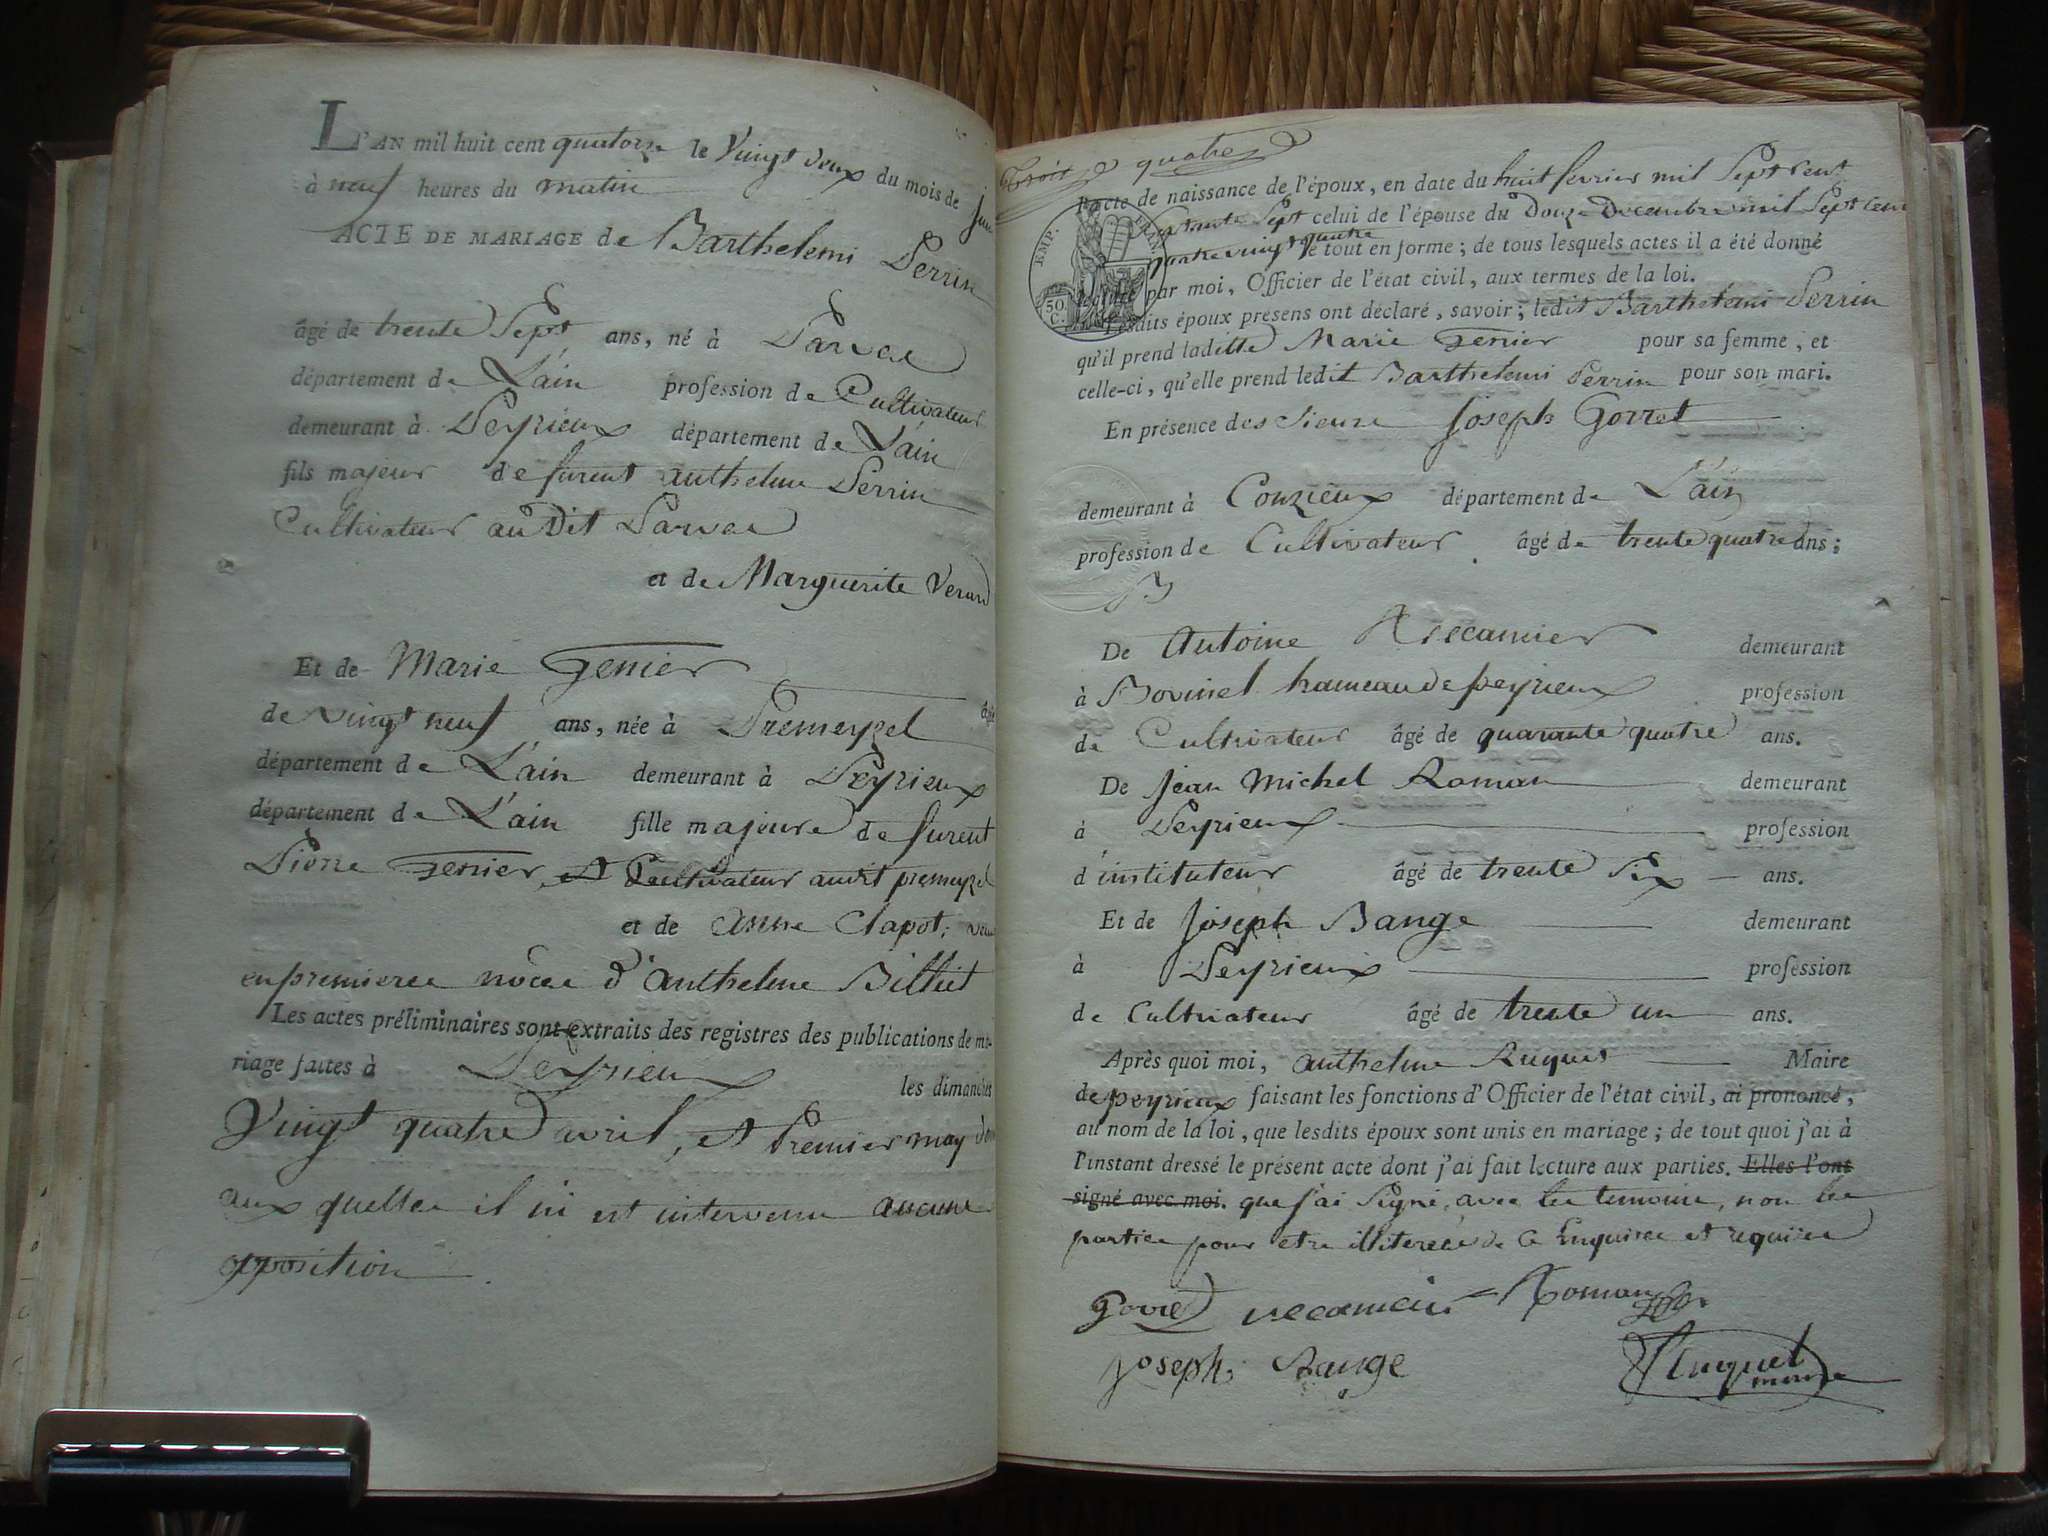 L'AN mil huit cent quatorze le Vingt deux du mois de juin
à neuf heures du matin
ACTE DE MARIAGE de Barthelemi Perrin
âgé de trente Sept ans, né à Parves
département de L'ain profession de Cultivateur
demeurant à Peyrieux département de L'ain
fils majeur de furent anthelme Perrin
Cultivateur au Dit Parves
et de Marguerite
Et de Marie Genier âgée
de vingt neuf ans, née à Premeyzel
département de L'ain demeurant à Peyrieux
département de L'ain fille majeure de furent
Pierre Genier Cultivateur audit premeyzel
et de anne Clapot; veuve
en premieres nôces d'anthelme Billiet
Les actes préliminaires sont extraits des registres des publications de ma-
riage faites à Peyrieux les dimanches
Vingt quatre avril, et Premier may
aux quelles il ni est intervenu aucune
opposition
trois quatre
l'acte de naissance de l'époux, en date du huit fevrier mil Sept Cent
Septante Sept celui de l'épouse du Douze Decembre mil Sept Cent
quatre vingt quatre le tout en forme; de tous lesquels actes il a été donné
lecture par moi, Officier de l'état civil, aux termes de la loi.
EMP. FRAN.
50 C.
Lesdits époux présens ont déclaré, savoir; ledit Barthelemi Perrin
qu'il prend laditte Marie Genier pour sa femme, et
celle-ci, qu'elle prend ledit Barthelemi Perrin pour son mari.
En présence des Sieurs Joseph Gorret
demeurant à Conzieux département de L'ain
profession de Cultivateur âgé de trente quatre ans;
De Antoine Recamier demeurant
à Bovinel hameau de peyrieux profession
de Cultivateur âgé de quarante quatre ans.
De Jean Michel Roman demeurant
à Peyrieux profession
d'instituteur âgé de trente Six ans.
Et de Joseph Bange demeurant
à Peyrieux profession
de Cultivateur âgé de trente un ans.
Après quoi moi, anthelme Maire
de peyrieux faisant les fonctions d'Officier de l'état civil, ai prononcé,
au nom de la loi, que lesdits époux sont unis en mariage; de tout quoi j'ai à
l'instant dressé le présent acte dont j'ai fait lecture aux parties. Elles l'ont
signé avec moi. que j'ai Signé, avec les temoins, non les
parties pour etre illiterées de ce Enquises et requises
Gorret recamier Roman
joseph Bange
maire